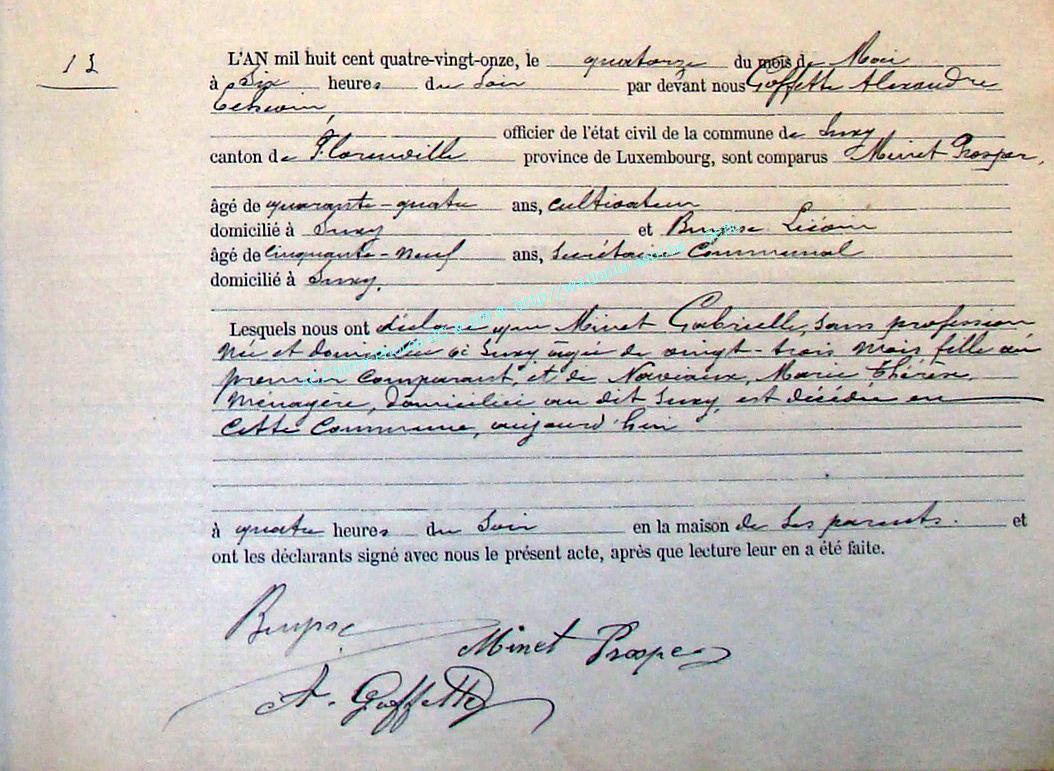 13
L'AN mil huit cent quatre-vingt-onze, le quatorze du mois de Mai
à Six heures du Soir par devant nous Goffette Alexandre
Echevin,
officier de l'état civil de la commune de Suxy
canton de Florenville province de Luxembourg, sont comparus Minet Prosper,
âgé de quarante-quatre ans, cultivateur
domicilié à Suxy et
âgé de Cinquante-neuf ans, Secrétaire Communal
domicilié à Suxy.
Lesquels nous ont déclaré que Minet Gabrielle, sans profession
née et domiciliée à Suxy âgée de vingt-trois mois, fille du
premier Comparant, et de Naviaux, Marie Thérèse,
Ménagère, domiciliée au dit Suxy, est décédée en
Cette Commune, aujourd'hui
à quatre heures du Soir en la maison de Ses parents. et
ont les déclarants signé avec nous le présent acte, après que lecture leur en a été faite.
Minet Prosper
A. Goffette